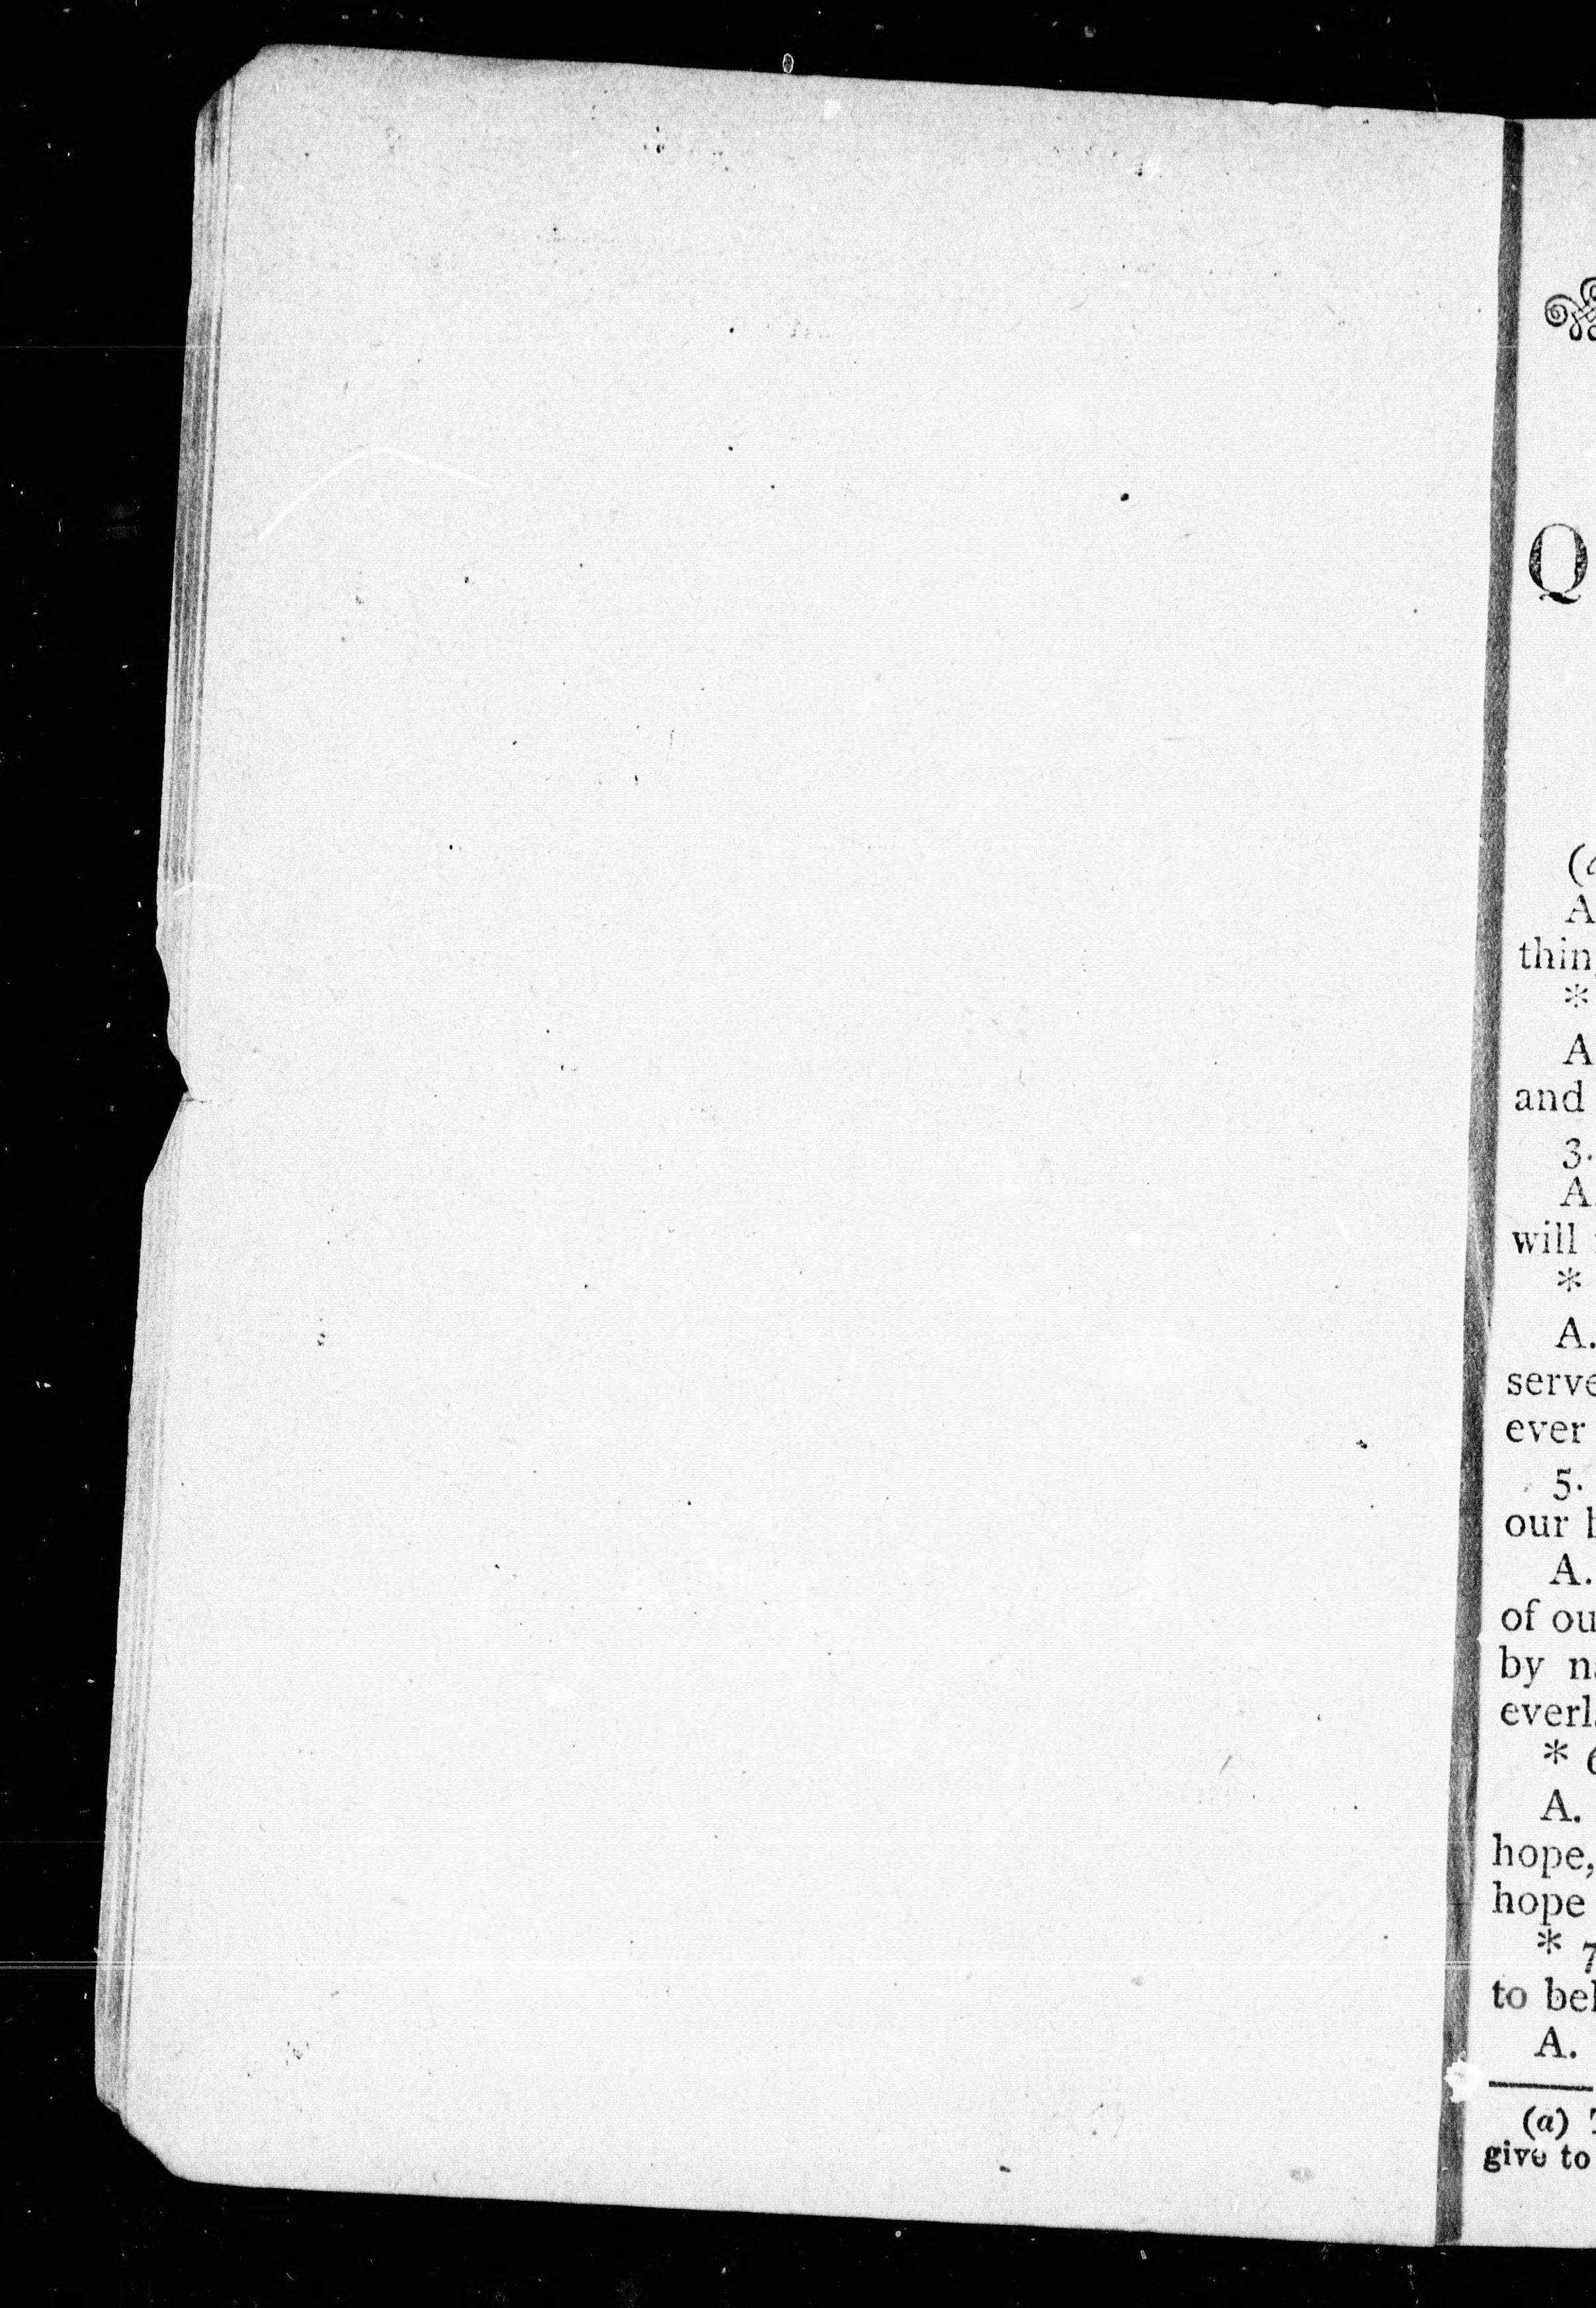 Q
(a
A
thin
*
A
and
3.
A.
will
*
A.
serve
ever
5.
our
A.
of ou
by n
everl
* 6
A.
hope,
hope
* 7
to bel
A.
(a) T
give to